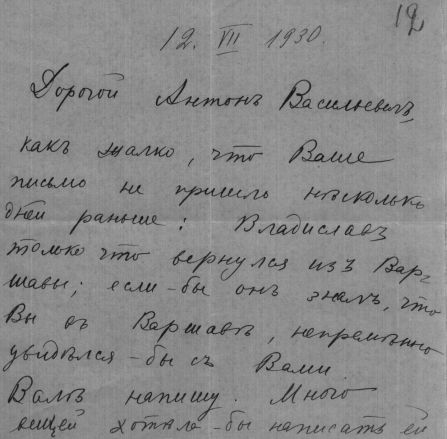 12
12. VII 1930.
Дорогой Антонъ Васильевичъ,
какъ жалко, что Ваше
письмо не пришло нѣсколько
дней раньше: Владиславъ
только что вернулся изъ Вар-
шавы; если-бы онъ зналъ, что
Вы въ Варшавѣ, непремѣнно
увидѣлся-бы съ Вами
напишу. Много
вещей хотѣла-бы написать ей